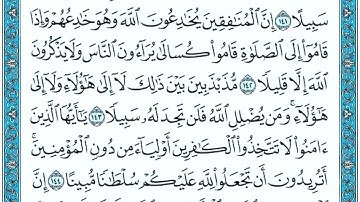 سَبِيلًا ١٤١ إِنَّ ٱلْمُنَٰفِقِينَ يُخَٰدِعُونَ ٱللَّهَ وَهُوَ خَٰدِعُهُمْ وَإِذَا
قَامُوٓا۟ إِلَى ٱلصَّلَوٰةِ قَامُوا۟ كُسَالَىٰ يُرَآءُونَ ٱلنَّاسَ وَلَا يَذْكُرُونَ
ٱللَّهَ إِلَّا قَلِيلًا ١٤٢ مُّذَبْذَبِينَ بَيْنَ ذَٰلِكَ لَآ إِلَىٰ هَٰٓؤُلَآءِ وَلَآ إِلَىٰ
هَٰٓؤُلَآءِ ۚ وَمَن يُضْلِلِ ٱللَّهُ فَلَن تَجِدَ لَهُۥ سَبِيلًا ١٤٣ يَٰٓأَيُّهَا ٱلَّذِينَ
ءَامَنُوا۟ لَا تَتَّخِذُوا۟ ٱلْكَٰفِرِينَ أَوْلِيَآءَ مِن دُونِ ٱلْمُؤْمِنِينَ ۚ
أَتُرِيدُونَ أَن تَجْعَلُوا۟ لِلَّهِ عَلَيْكُمْ سُلْطَٰنًا مُّبِينًا ١٤٤ إِنَّ